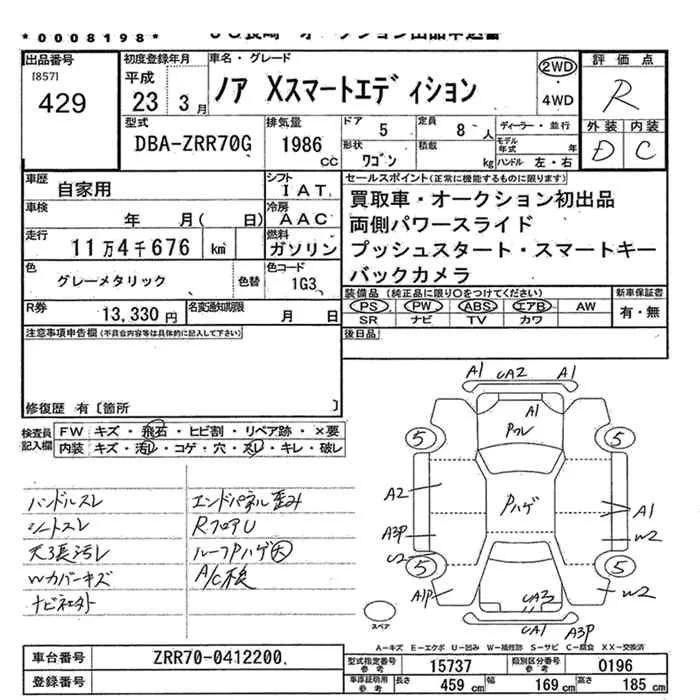 *0008198*
出品番号
[857]
429
初度登録年月
平成
23 3月
車名・グレード
ノア Xスマートエディション
2WD
・4WD
評価点
R
外装 内装
D C
型式
DBA-ZRR70G
排気量
1986
cc
ドア
5
形状
ワゴン
定員
8 人
積載
kg
ディーラー・並行
モデル年式 年
ハンドル 左・右
車歴
自家用
シフト
IAT
車検
年 月( 日)
冷房
AAC
走行
11万4千676 km
燃料
ガソリン
色
グレーメタリック
色替
色コード
1G3
R券
13,330 円
名変通知期限
月 日
セールスポイント(正常に機能するものに限ります)
買取車・オークション初出品
両側パワースライド
プッシュスタート・スマートキー
バックカメラ
装備品(純正品に限り○をつけてください)
PS PW ABS エアB AW
SR ナビ TV カワ
新車保証書
有・無
後日品
注意事項申告欄(不具合内容等は具体的に記入して下さい)
修復歴 有〔箇所 〕
検査員記入欄
FW キズ・飛石・ヒビ割・リペア跡・×要
内装 キズ・汚レ・コゲ・穴・スレ・キレ・破レ
ハンドルスレ
シートスレ
天張汚レ
Wカバーキズ
エンドパネル歪み
RフロアU
ルーフPハゲ大
A1 UA2 A1
A1
5 5
Pハゲ
A2
A1
A3P
W2
U2
5 5
A1P
W2
UA3
UA1 A3P
スペア
A-キズ E-エクボ U-凹み W-補修跡 S-サビ C-腐食 XX-交換済
車台番号
ZRR70-0412200
登録番号
型式指定番号 参考
15737
類別区分番号 参考
0196
車庫証明用 参考
長さ 459 cm 幅 169 cm 高さ 185 cm